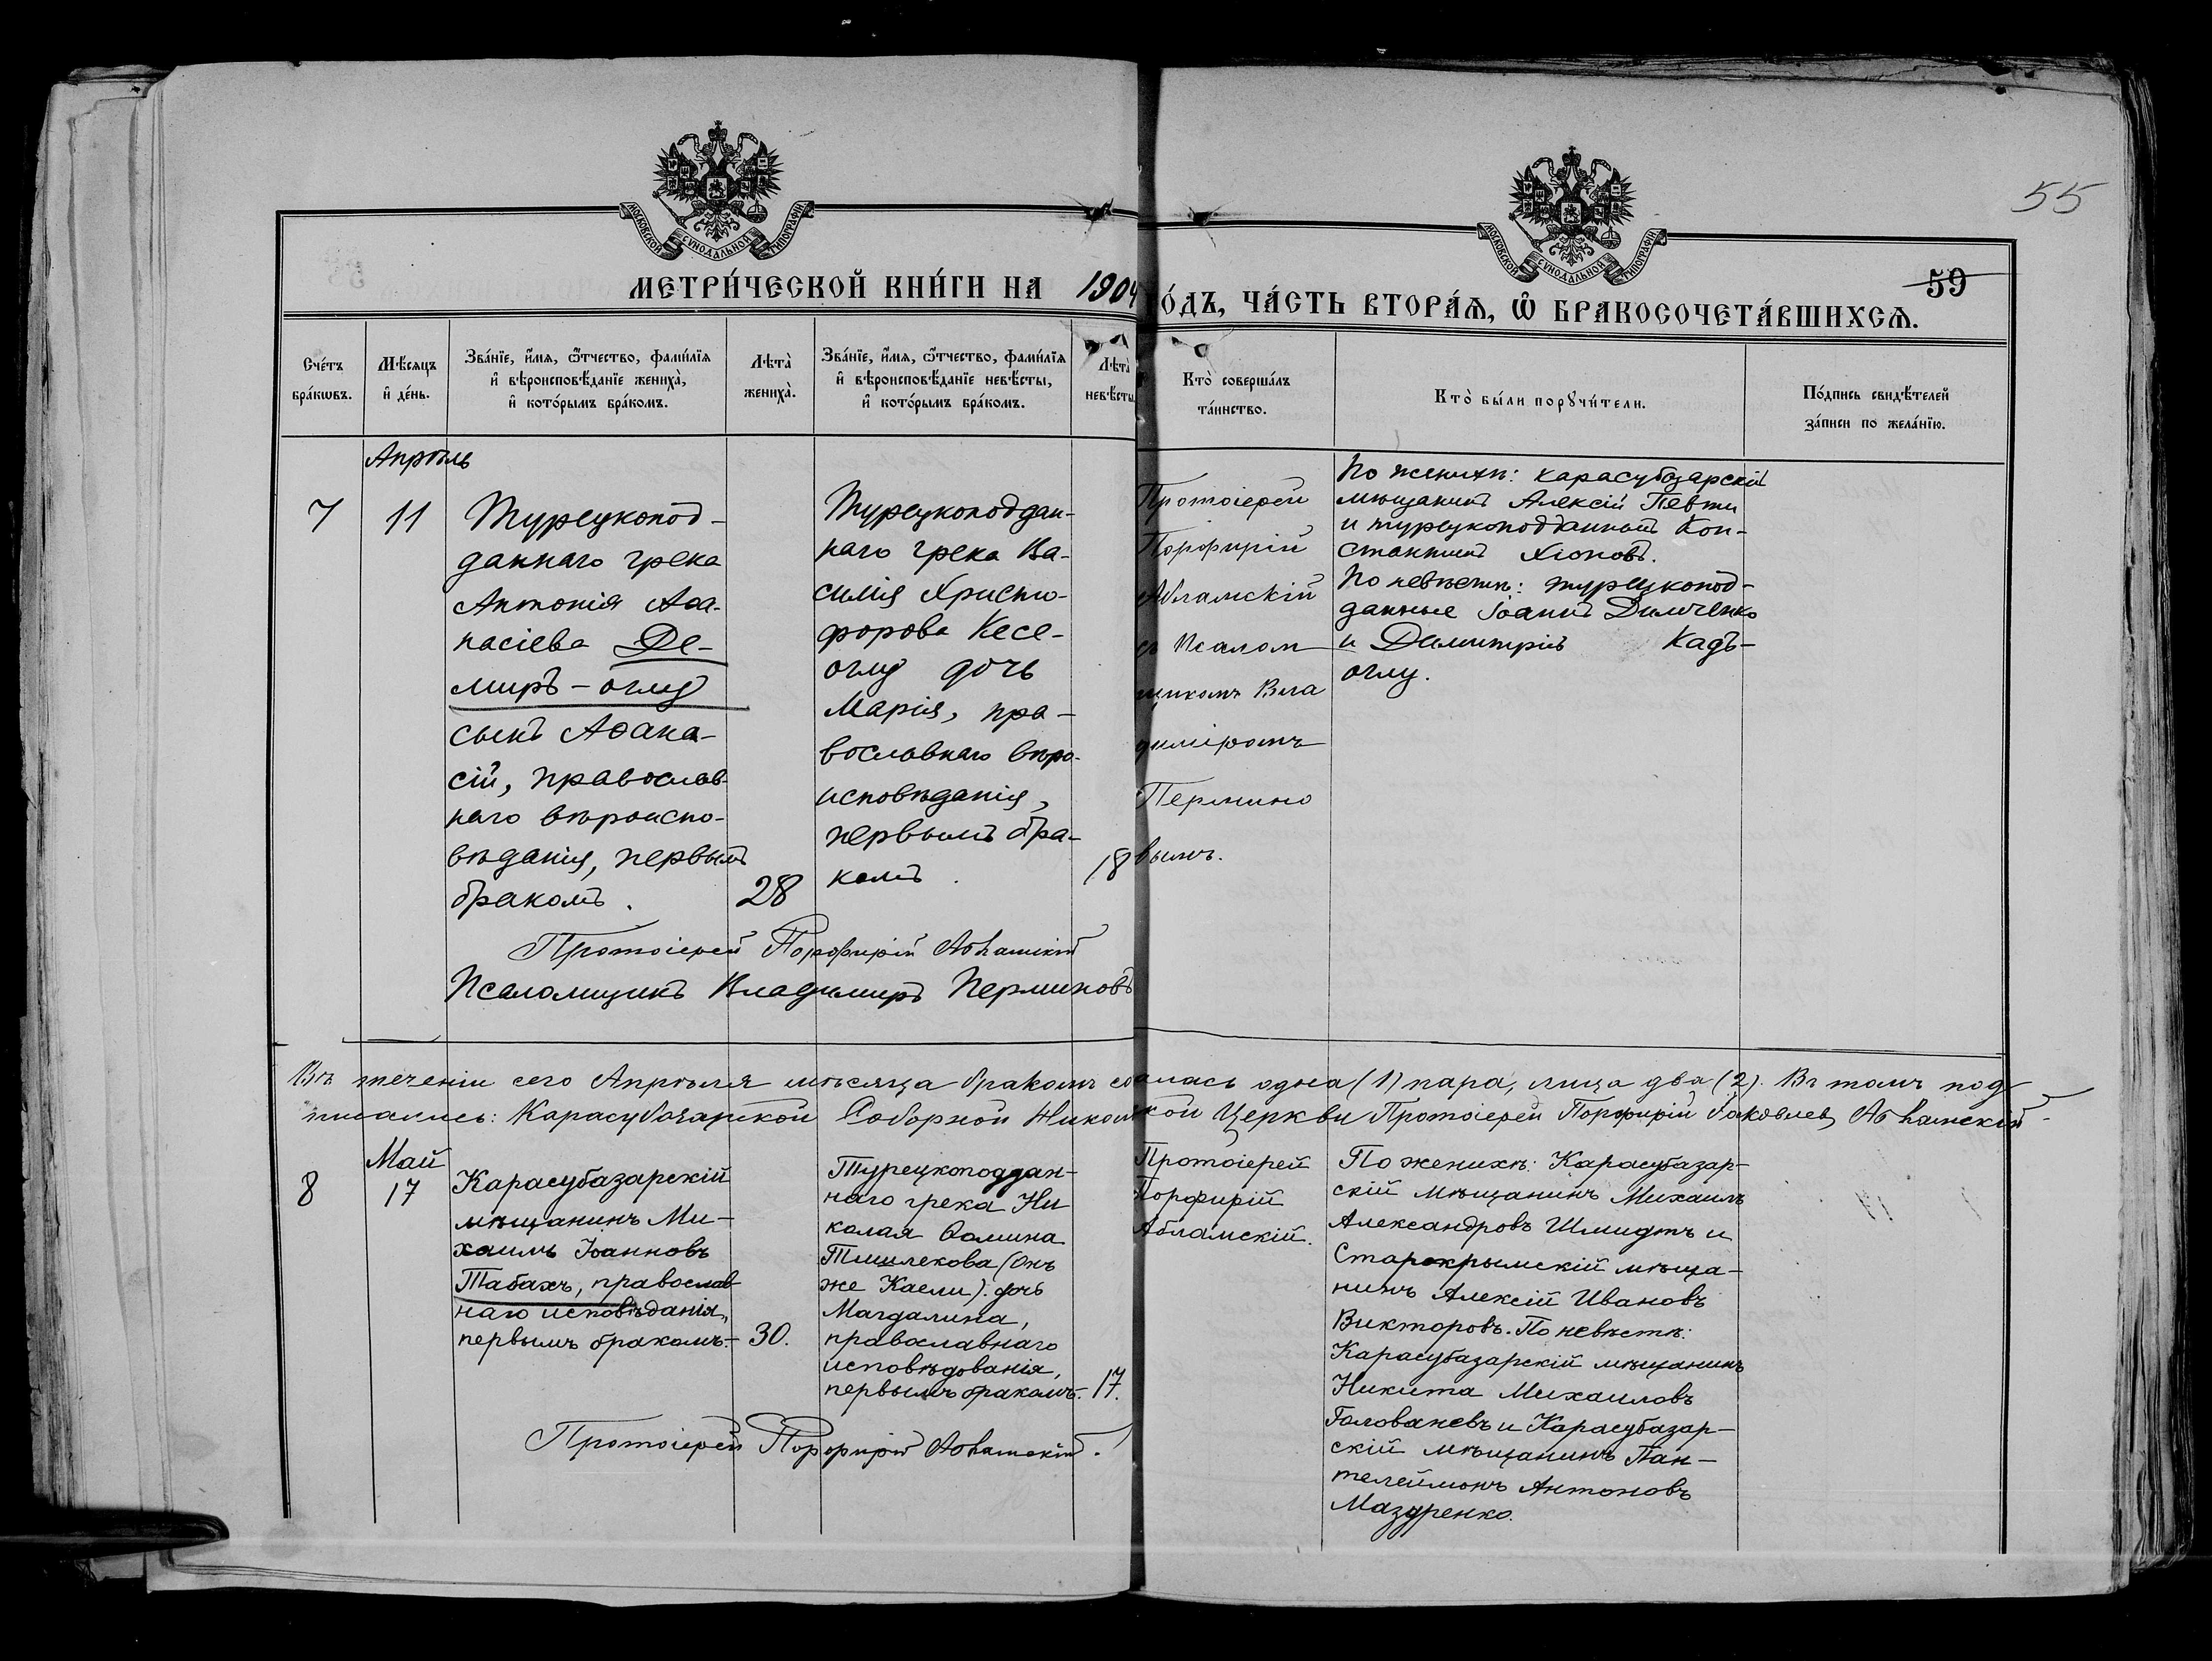 55
МОСКОВСКОЙ СУНОДАЛЬНОЙ ТИПОГРАФІИ
МОСКОВСКОЙ СУНОДАЛЬНОЙ ТИПОГРАФІИ
59
МЕТРИ́ЧЕСКОЙ КНИ́ГИ НА 1904
О́ДЪ, ЧА́СТЬ ВТОРА́Ѧ, Ѿ БРАКОСОЧЕТА́ВШИХСѦ.
Сче́тъ
бра́кѡвъ.
Мѣ́сѧцъ
и҆ де́нь.
Зва́нїе, и҆́мѧ, ѻ҆́тчество, фами́лїѧ
и҆ вѣроисповѣ́данїе жениха̀,
и҆ кото́рымъ бра́комъ.
Лѣта̀
жениха̀.
Зва́нїе, и҆́мѧ, ѻ҆́тчество, фами́лїѧ
и҆ вѣроисповѣ́данїе невѣ́сты,
и҆ кото́рымъ бра́комъ.
Лѣта̀
невѣ́сты
Кто̀ соверша́лъ
та́инство.
Кто̀ бы́ли порꙋчи́тели.
По́дпись свидѣ́телей
за́писи по жела́нїю.
Апрѣль
7
11
Турецкопод-
даннаго грека
Антонія Аѳа-
насіева Де-
миръ-оглу
сынъ Аѳана-
сій, православ-
наго вѣроиспо-
вѣданія, первымъ
бракомъ.
28
Турецкоподдан-
наго грека Ва-
силія Христо-
форова Кесе-
оглу дочь
Марія, пра-
вославнаго вѣро-
исповѣданія,
первымъ бра-
комъ.
18
Протоіерей
Порфирій
Абламскій
съ Псалом
щикомъ Вла
диміромъ
Пермино
вымъ.
По женихѣ: карасубазарскій
мѣщанинъ Алексій Певти
и турецкоподданный Кон-
стантинъ Хіоновъ.
По невѣстѣ: турецкопод-
данные Іоаннъ Димченко
и Димитрій Кадъ-
оглу.
Протоіерей Порфирій Абламскій
Псаломщикъ Владимиръ Перминовъ
Въ теченіи сего Апрѣля мѣсяца бракомъ со алась одна (1) пара, лица два (2). Въ томъ под-
писались: Карасубазарской Соборной Никол кой Церкви Протоіерей Порфирій Іаковлевъ Абламскій
Май
8
17
Карасубазарскій
мѣщанинъ Ми-
хаилъ Іоанновъ
Табахъ, православ-
наго исповѣданія,
первымъ бракомъ.-
30.
Турецкоподдан-
наго грека Ни
колая Ѳомина
Тишлекова (Онъ
же Каели). дочь
Магдалина,
православнаго
исповѣдованія,
первымъ бракомъ.
17.
Протоіерей
Порфирій
Абламскій.
По женихѣ: Карасубазар-
скій мѣщанинъ Михаилъ
Александровъ Шмидтъ и
Старокрымскій мѣща-
нинъ Алексій Ивановъ
Викторовъ. По невѣстѣ:
Карасубазарскій мѣщанинъ
Никита Михаиловъ
Голованевъ и Карасубазар-
скій мѣщанинъ Пан-
телеймонъ Антоновъ
Мазуренко.
Протоіерей Порфирій Абламскій.